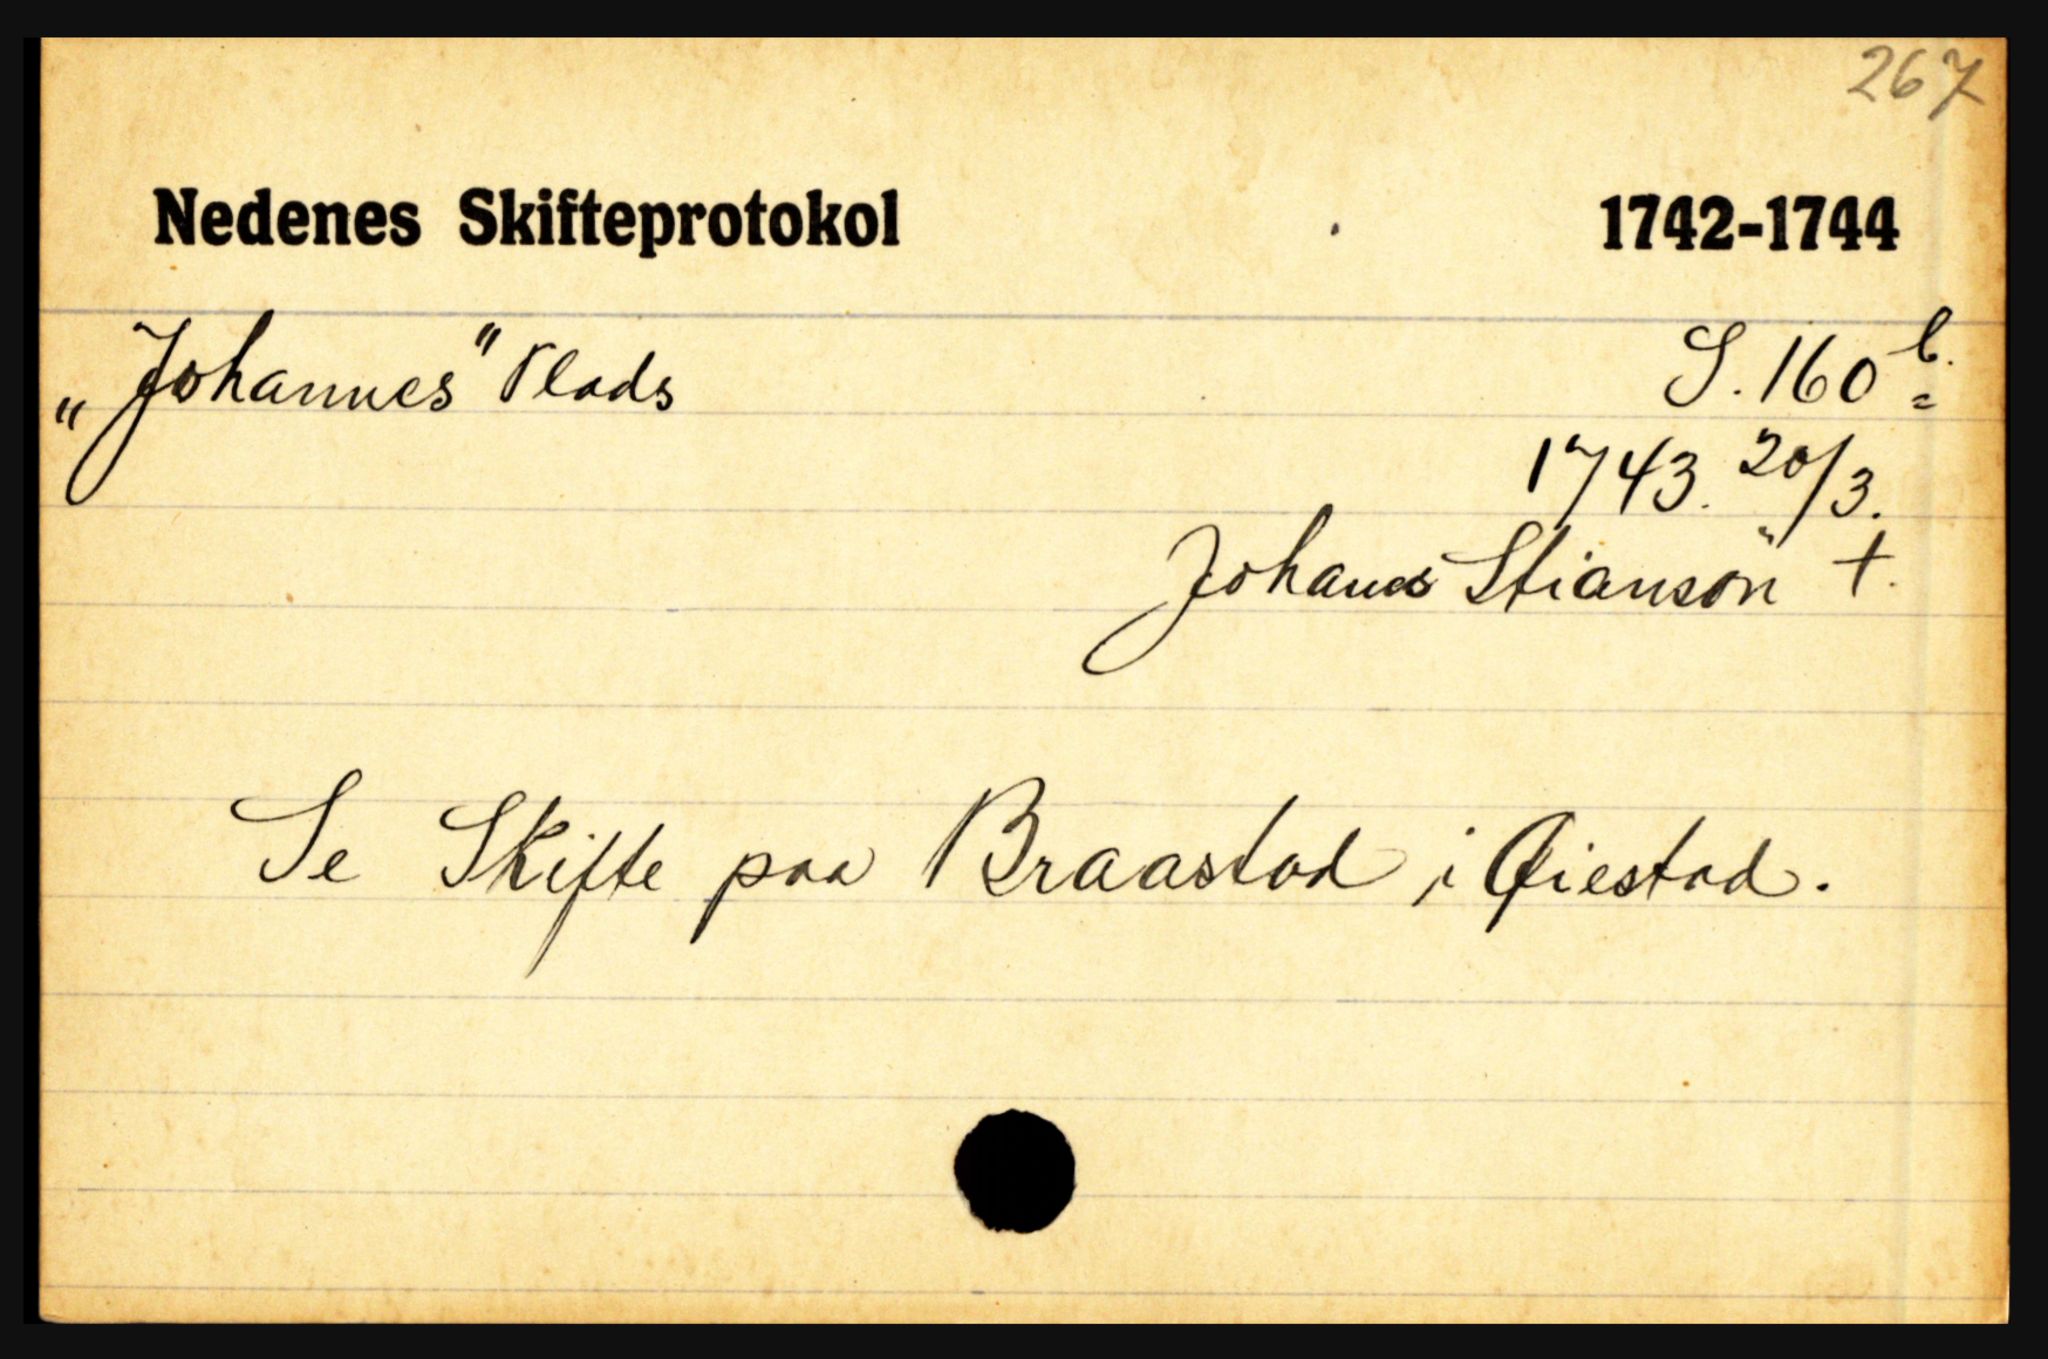 267
Nedenes Skifteprotokol 1742-1744
„Johannes" Plads S. 160 b.
1743. 20/3.
Johanes Stiansön †.
Se Skifte paa Braastad i Øiestad.